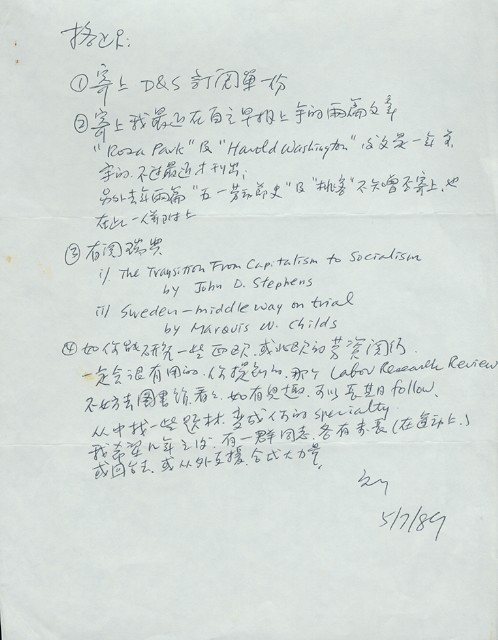 ① 寄上 D&S 訂閱單一份
② 寄上我最近在自立早報上寫的兩篇文章
"Rosa Park" 及 "Harold Washington" 該文是一年前
寫的,不過最近才刊出。
另外去年兩篇 "五一勞動節史" 及 "挑客" 不知曾否寄上,也
在此一併附上
③ 有關瑞典
i) The Transition From Capitalism to Socialism
by John D. Stephens
ii) Sweden - middle way on trial
by Marquis W. Childs
④ 如你能研究一些西歐,或北歐的勞資關係
一定會很有用的,你提到的那個 Labor Research Review
不妨去圖書館看看,如有興趣,可以長期 follow,
從中找一些題材,當成你的 specialty
我希望幾年之後,有一群同志,各有專長(在運動上)
或回台去,或從外支援,合成大力量。
5/7/89